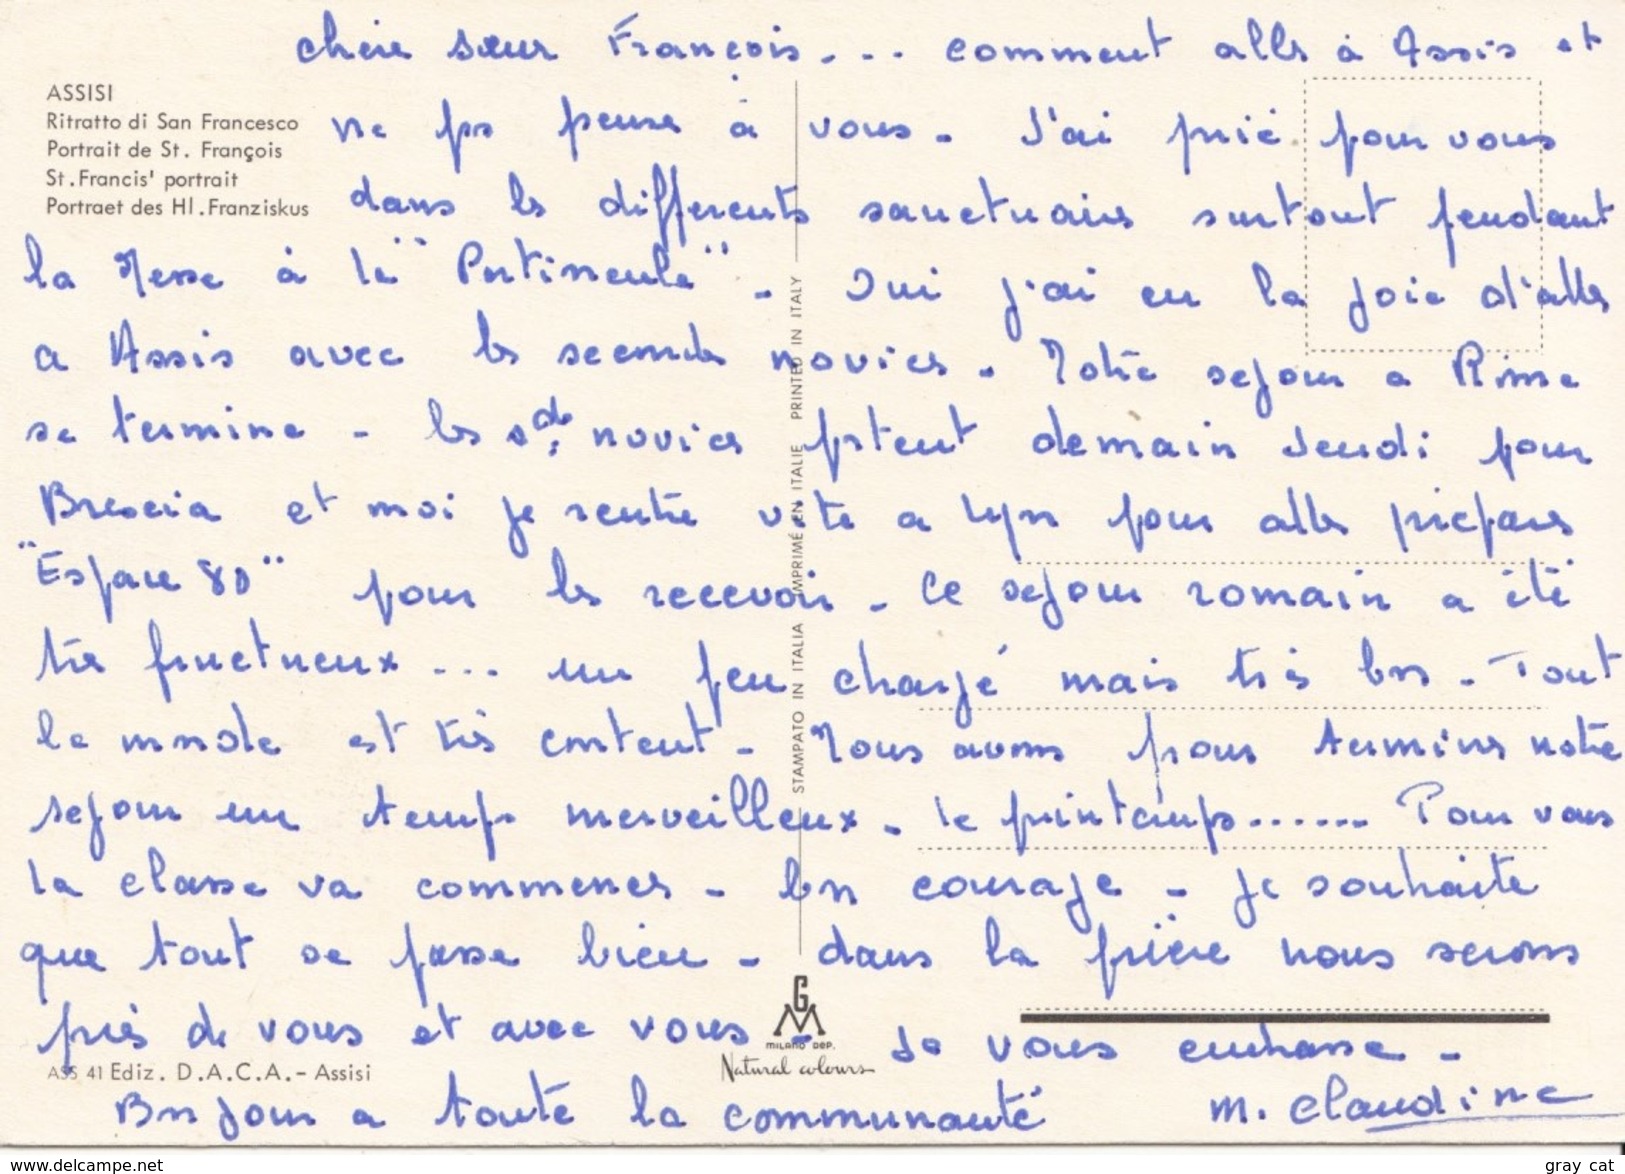 chère sœur François... comment aller à Assis et
ASSISI
Ritratto di San Francesco
Portrait de St. François
St. Francis' portrait
Portraet des Hl. Franziskus
ne pas penser à vous - J'ai prié pour vous
dans les différents sanctuaires surtout pendant
la Messe à la "Portiuncule" - Oui j'ai eu la joie d'aller
a Assis avec les secondes novices - Notre sejour a Rome
se termine - les sdes novices partent demain Jeudi pour
Brescia et moi je rentre vite a Lyon pour aller préparer
"Espace 80" pour les recevoir - Ce sejour romain a été
très fructueux... un peu chargé mais très bon - Tout
le monde est très content - Nous avons pour terminer notre
sejour un temps merveilleux - le printemps...... Pour vous
la classe va commencer - bon courage - Je souhaite
que tout se passe bien - dans la prière nous serons
près de vous et avec vous - Je vous embrasse -
Bonjour a toute la communauté M. Claudine
STAMPATO IN ITALIA IMPRIMÉ EN ITALIE PRINTED IN ITALY
GM
MILANO DEP.
Natural colours
ASS 41 Ediz. D.A.C.A. - Assisi
www.delcampe.net
gray_cat